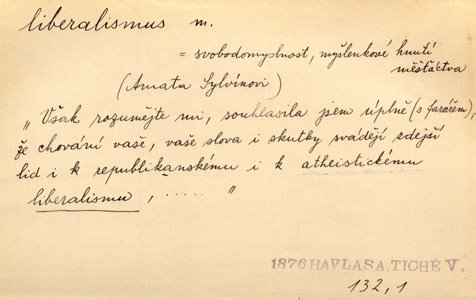 liberalismus m.
= svobodomyslnost, myšlenkové hnutí
měšťáctva
(Amata Sylvínovi)
„Však rozumějte mi, souhlasila jsem úplně (s farářem),
že chování vaše, vaše slova i skutky svádějí zdejší
lid i k republikanskému i k atheistickému
liberalismu, ..... "
1876 HAVLASA, TICHÉ V.
132,1